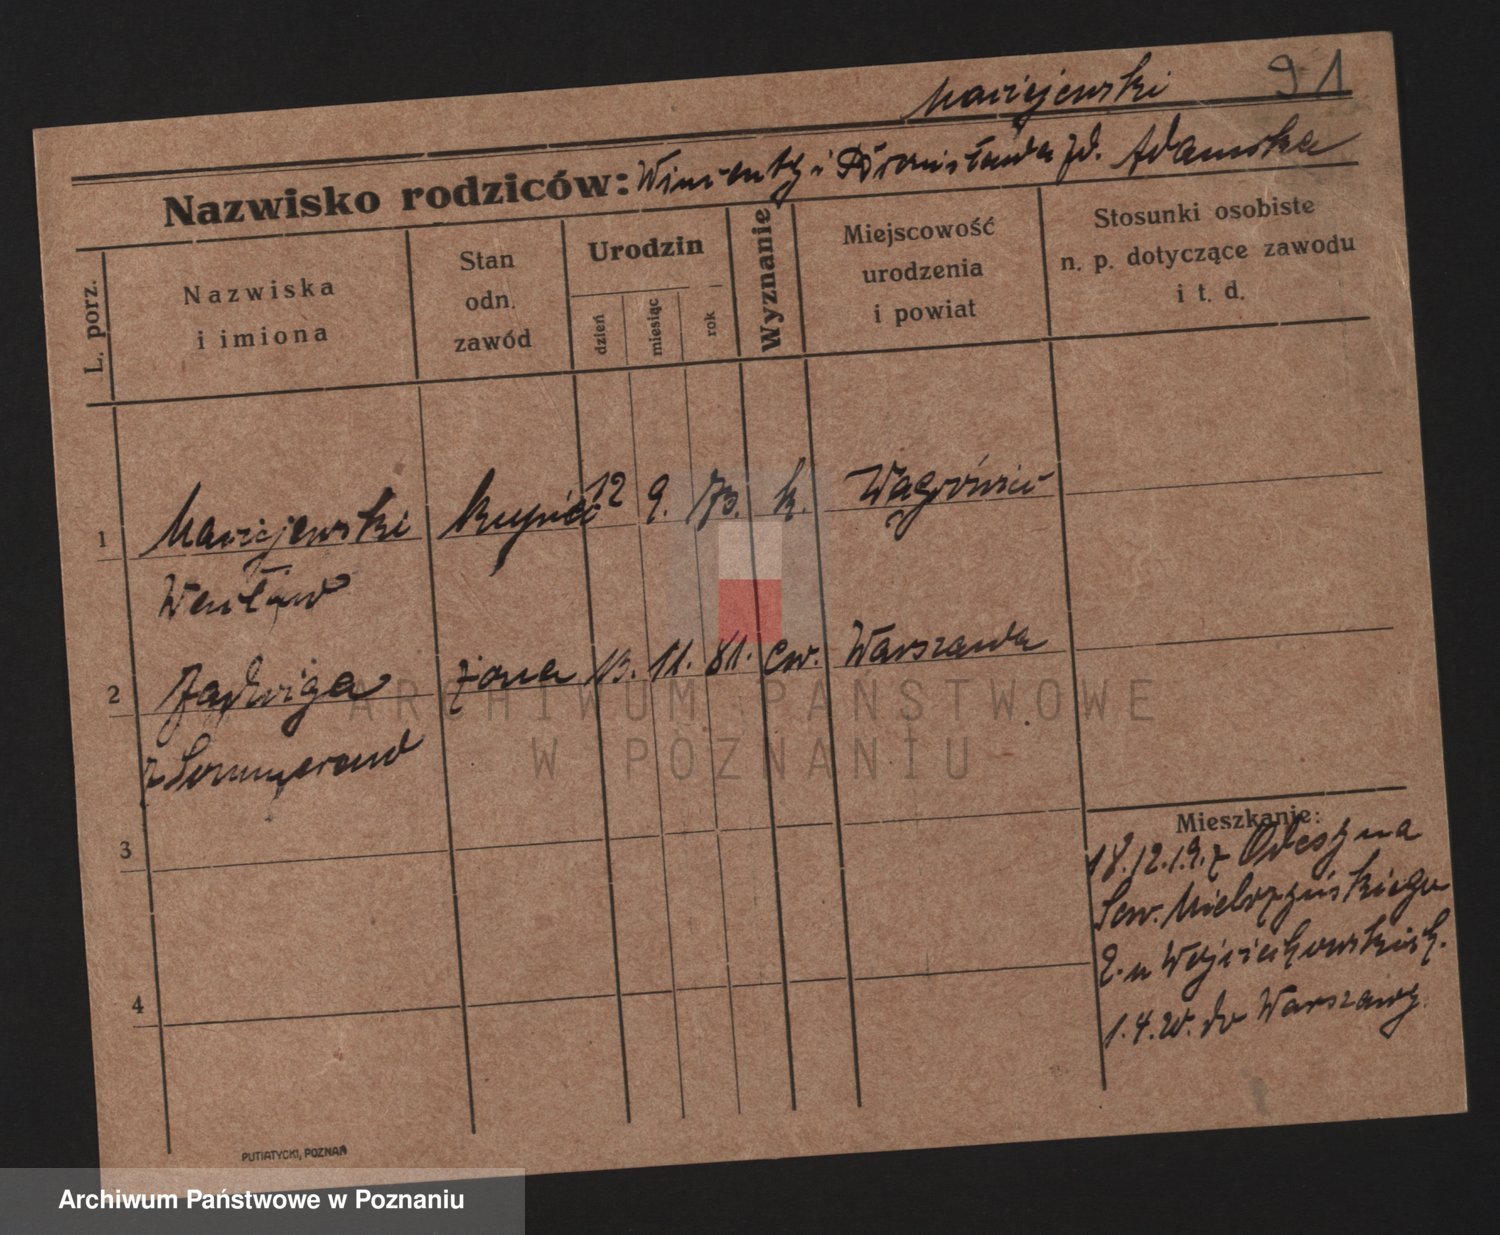 Maciejewski 91
Nazwisko rodziców: Wincenty i Bronisława zd. Adamska
L. porz.
Nazwiska
i imiona
Stan
odn.
zawód
Urodzin
dzień
miesiąc
rok
Wyznanie
Miejscowość
urodzenia
i powiat
Stosunki osobiste
n. p. dotyczące zawodu
i t. d.
1 Maciejewski kupiec 12 9. 73. k. Wągrówiec
Wacław
2 Jadwiga żona 13. 11. 81. ew. Warszawa
z Sommerand
3
4
Mieszkanie:
18.12.19. z
Sew. Mielżyńskiego
2. u Wojciechowskich.
1.4.20. do Warszawy.
PUTIATYCKI, POZNAŃ
ARCHIWUM PAŃSTWOWE
W POZNANIU
Archiwum Państwowe w Poznaniu